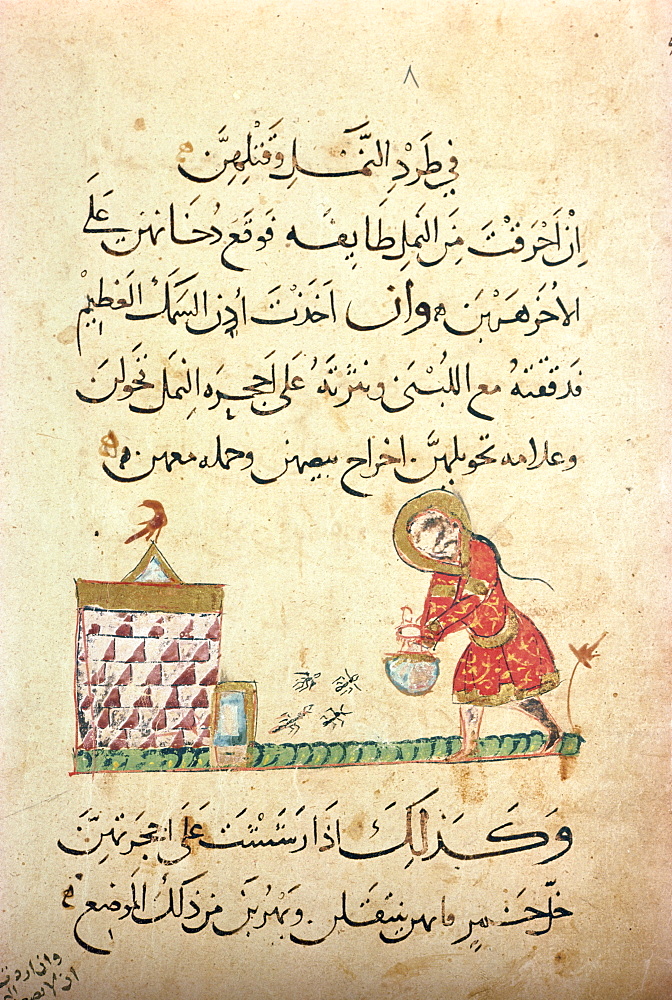 ٨
في طَرْدِ النَّمْلِ وَقَتْلِهِنَّ
اِنْ اَحْرَقْتَ مِنَ النَمِلِ طَايِفَه فَوقَعَ دُخَانهنَ عَلَى
الاُخَر هَرَبْنَ وان اَخَذْتَ اُذن السَمَك العَظِيمْ
فدَققتهُ مع اللُبْنَى ونثرتَهُ عَلَى اَحجِرَهِ النِمَل تحَولنَ
وعلامه تحويلهنَّ اخراج بيضهن وحمله معهن
وَكَذلِكَ اِذَا رَشَشْتَ عَلَى اَحجرَتهِنَّ
خل خمر فانهن ينتقلن ويَهْرُبنَ من ذلك المَوضِع
وان اردت
ان لا